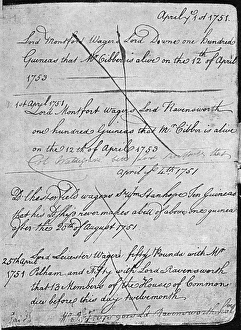 April ye 1st 1751.
Lord Montfort Wagers Lord Downe one Hundred
Guineas that Mr Cibber is alive on the 12 of April
1753
1st Apryl 1751
Lord Montfort Wagers Lord Ravensworth
one hundred Guineas that Mr Cibber is alive
on the 12th of April 1753
April ye 4th 1751
Ld Chesterfeld wagers Sr Wm Stanhope Ten Guineas
that his
never makes a bill of above one guinea
after the 25th of August 1751
25th April
1751
Lord Leicester Wagers fifty Pounds with Mr
Pelham and fifty with Lord Ravensworth
that 13 Members of the House of Commons
die before this day twelvemonth
Lord Ravensworth